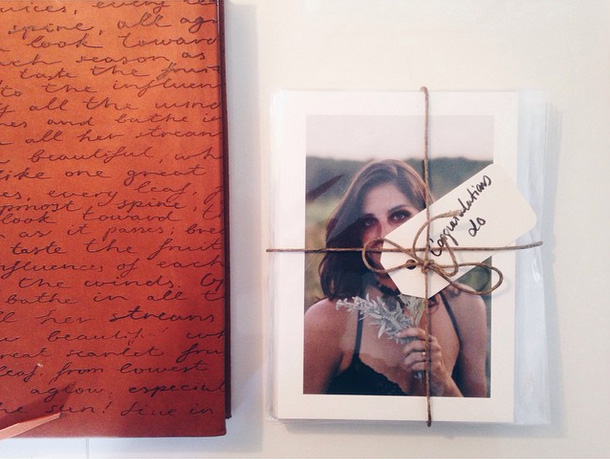 spine, all ag
look toward
ch season as
taste the frui
to the influen
y all the wind
nes and bathe i
all her stream
beautiful, wh
like one great
es, every leaf, f
pmost, spine,
look toward t
as it passes; bre
taste the fruit
nfluences of each
the winds. O
Bathe in all t
ll her streams
beautif wh
reat scarlet fru
leaf, from lowest
aglow, especial
he sun! Live in
Congratulations
xo